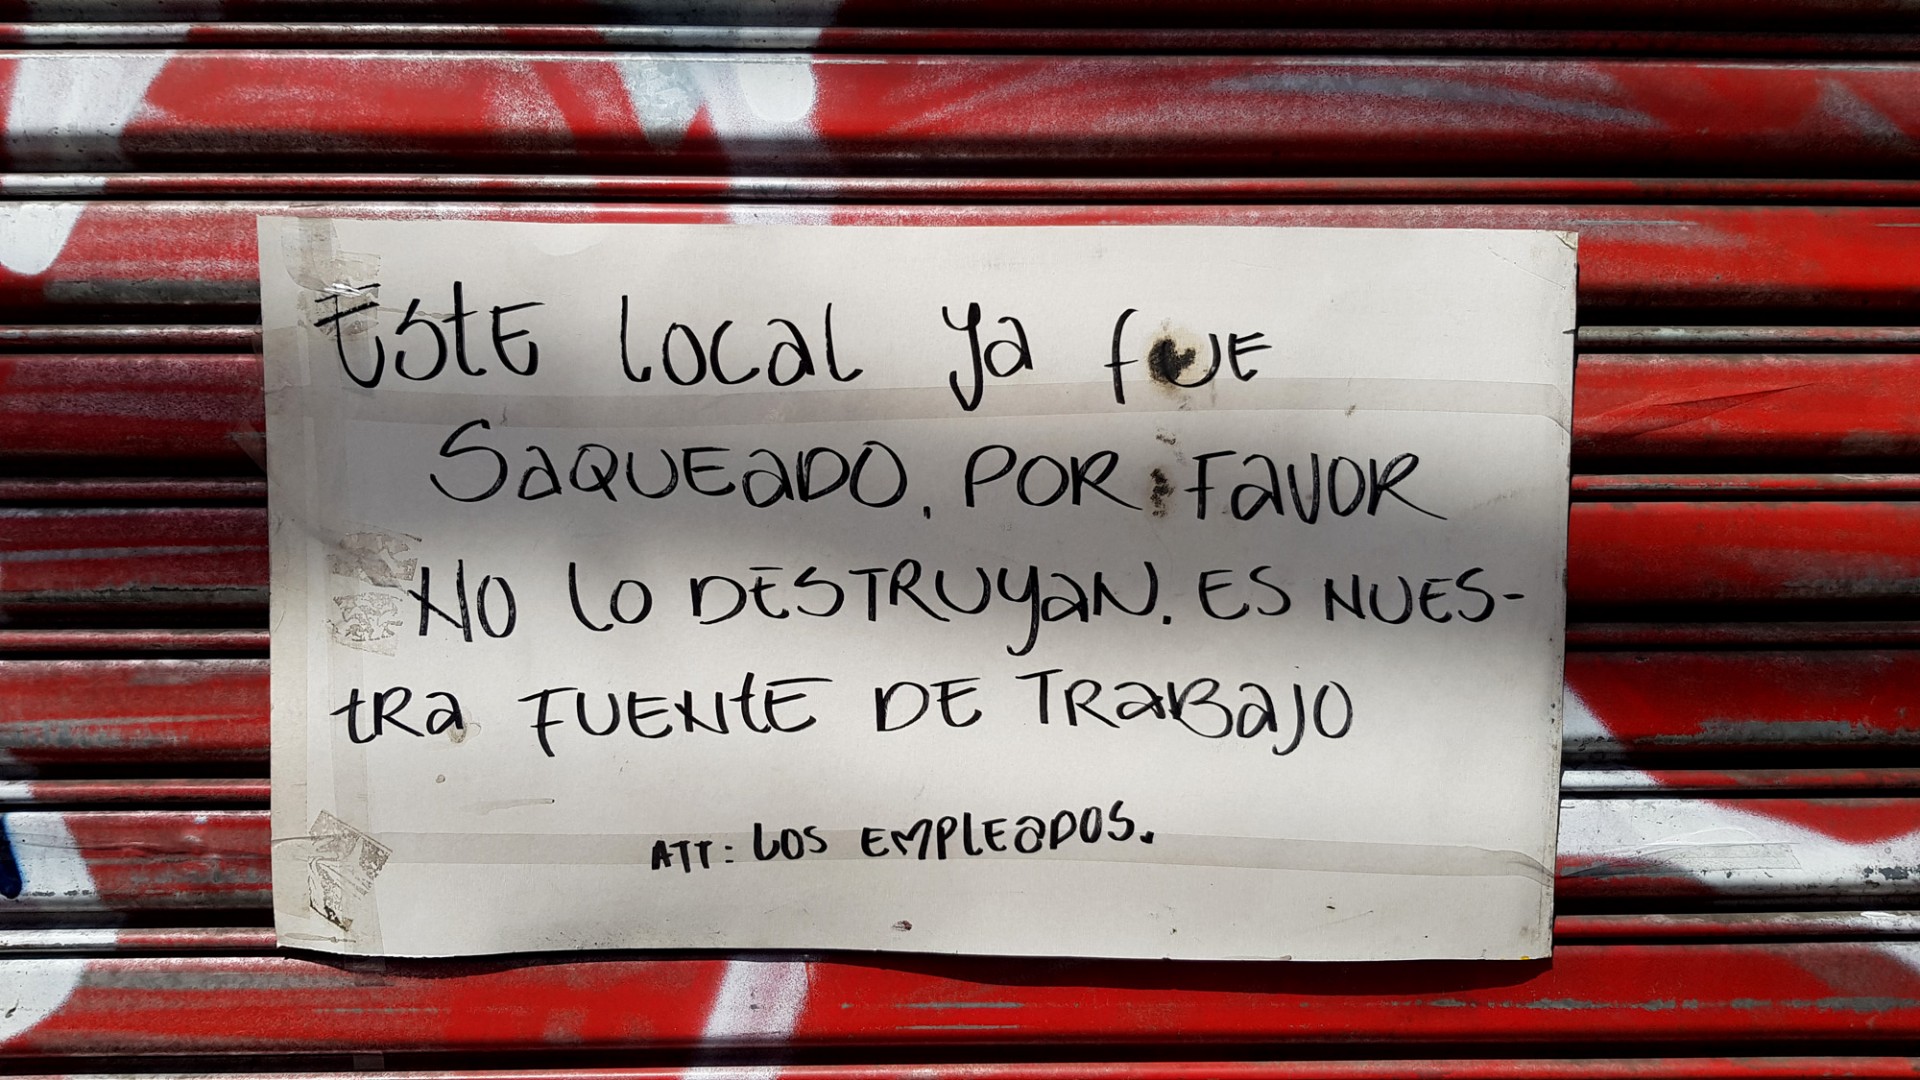 Este local ya fue
saqueado, por favor
no lo destruyan. Es nues-
tra fuente de trabajo
ATT: Los empleados.